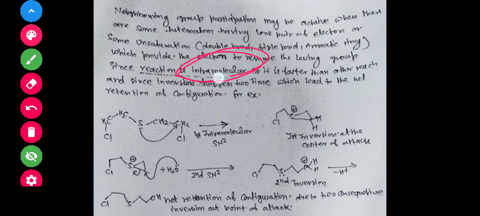 Neighbouring group participation may be achive when there
are some heteroatom having lone pair of electron or
some unsaturation (double bond, triple bond, aromatic ring)
which provide the electron to remove the leaving group
since reaction is intramolecular so it is faster than other reach
and since inversion happen two time which lead to the net
retention of configuration. for ex.
H2C H2C S CH2 CH2
Cl Cl
by Intramolecular
SN2
Cl S ⊕ H H
1st Inversion at the
center of attack
Cl S ⊕ + H2O
2nd SN2
Cl S ⊕ H H
2nd Inversion
-H+
Cl S OH net retention of configuration due to two consequtive
inversion at point of attack.